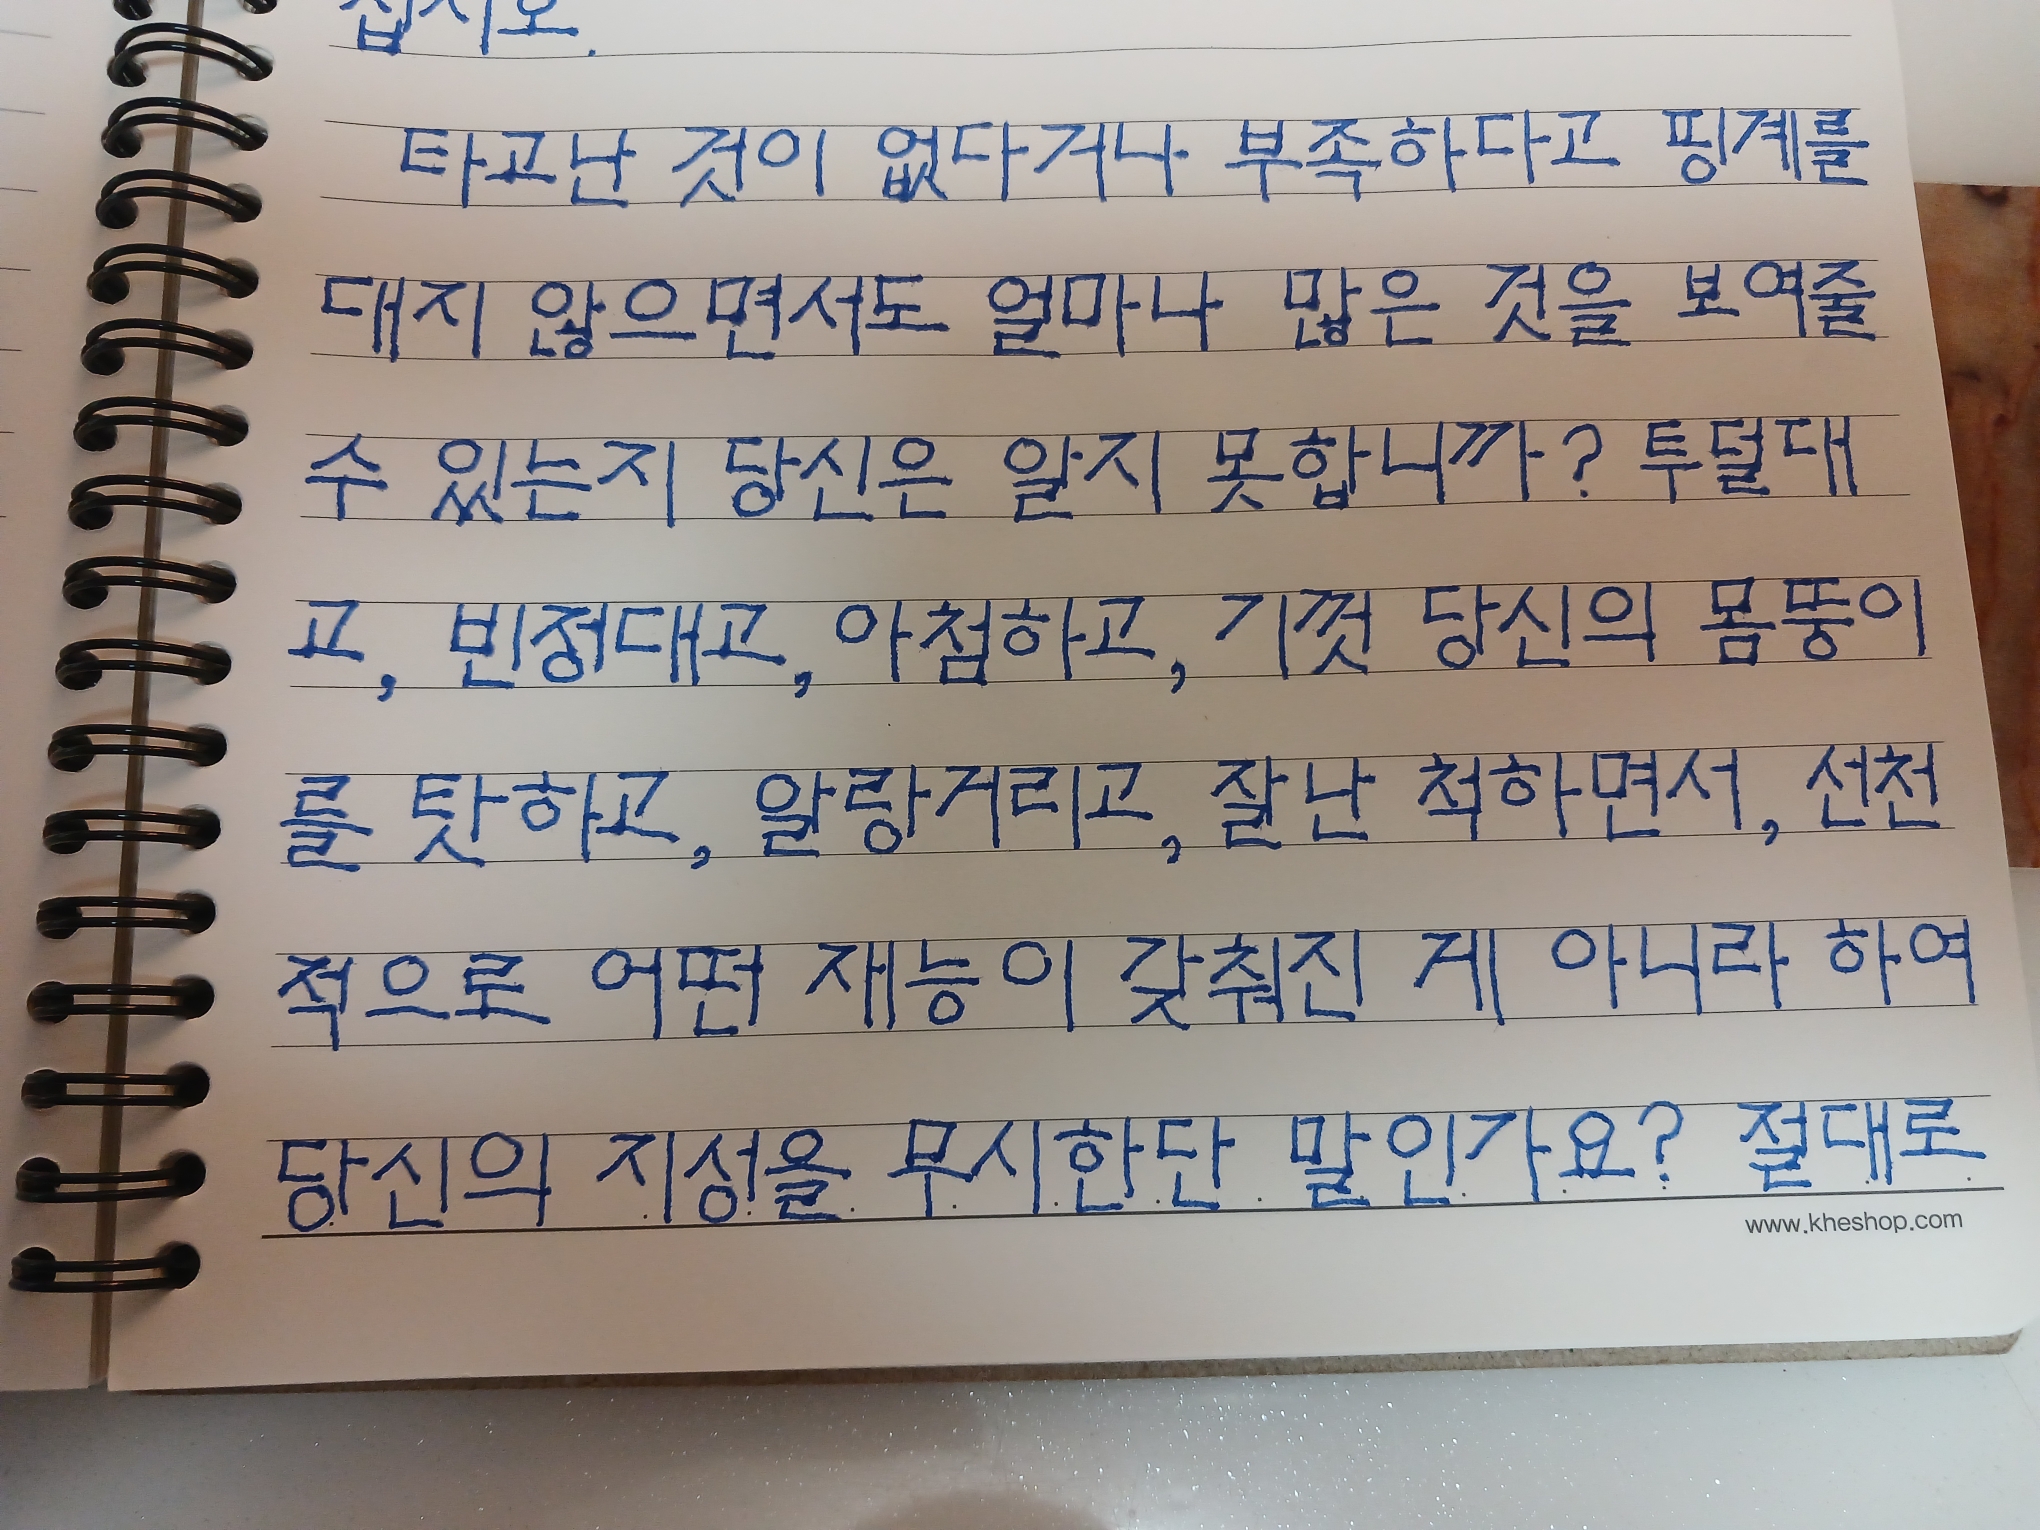 십시오.
타고난 것이 없다거나 부족하다고 핑계를
대지 않으면서도 얼마나 많은 것을 보여줄
수 있는지 당신은 알지 못합니까? 투덜대
고, 빈정대고, 아첨하고, 기껏 당신의 몸뚱이
를 탓하고, 알랑거리고, 잘난 척하면서, 선천
적으로 어떤 재능이 갖춰진 게 아니라 하여
당신의 지성을 무시한단 말인가요? 절대로
www.kheshop.com